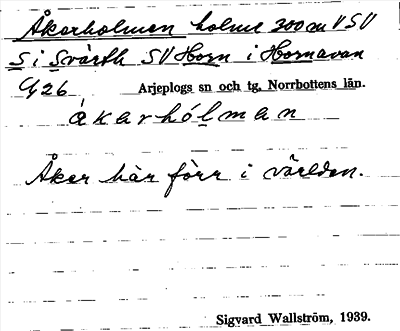 Åkerholmen holme 300 m VSV
S i Svärth SV Horn i Hornavan
Arjeplogs sn och tg, Norrbottens län.
åkarhólman
Åker här förr i världen.
Sigvard Wallström, 1939.